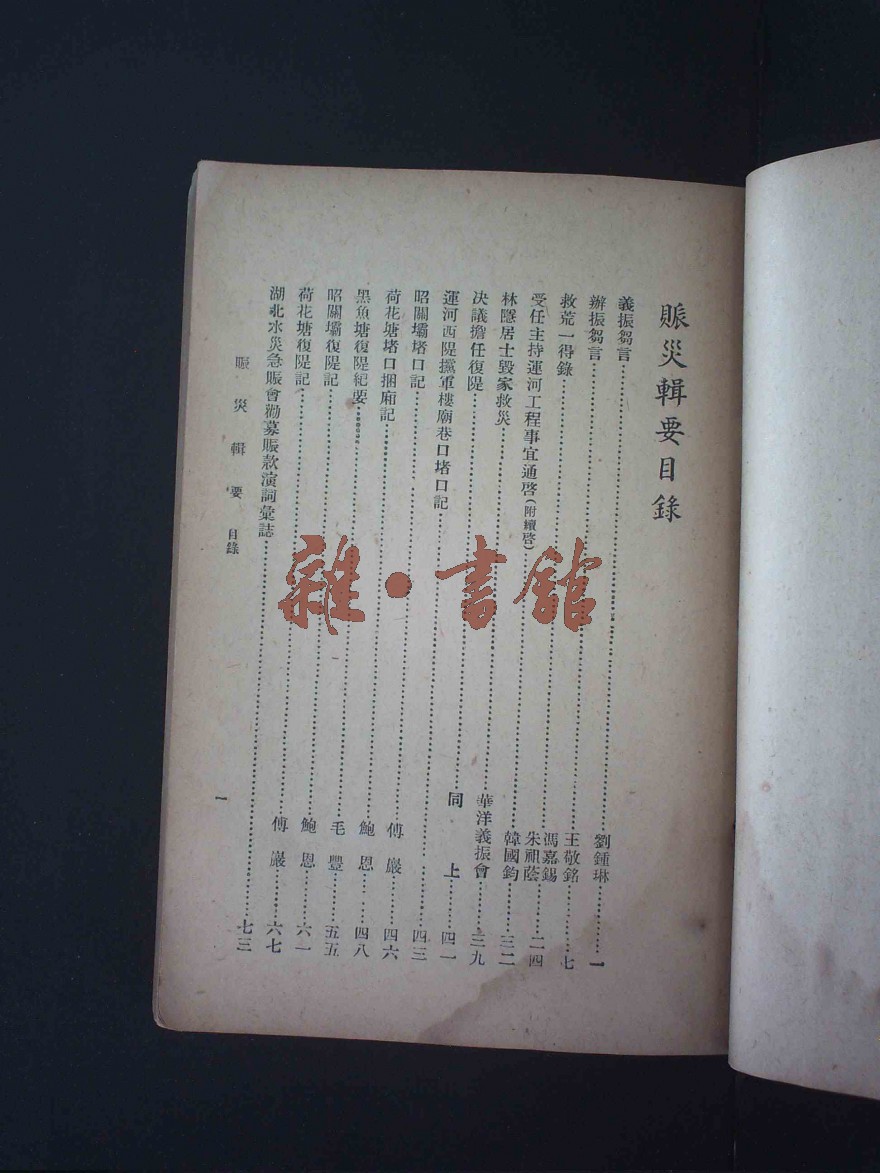 賑災輯要目錄
義振芻言……劉鍾琳……一
辦振芻言……王敬銘……七
救荒一得錄……馮嘉錫 朱祖蔭……二四
受任主持運河工程事宜通啓(附續啓)……韓國鈞……三二
林隱居士毀家救災……華洋義振會……三九
決議擔任復隄……同上……四一
運河西隄攩軍樓廟巷口堵口記……四三
昭關壩堵口記……傅巖……四六
荷花塘堵口捆廂記……鮑恩……四八
黑魚塘復隄紀要……毛豐……五五
昭關壩復隄記……鮑恩……六一
荷花塘復隄記……傅巖……六七
湖北水災急賑會勸募賑款演詞彙誌……七三
賑災輯要 目錄
一
雜·書館